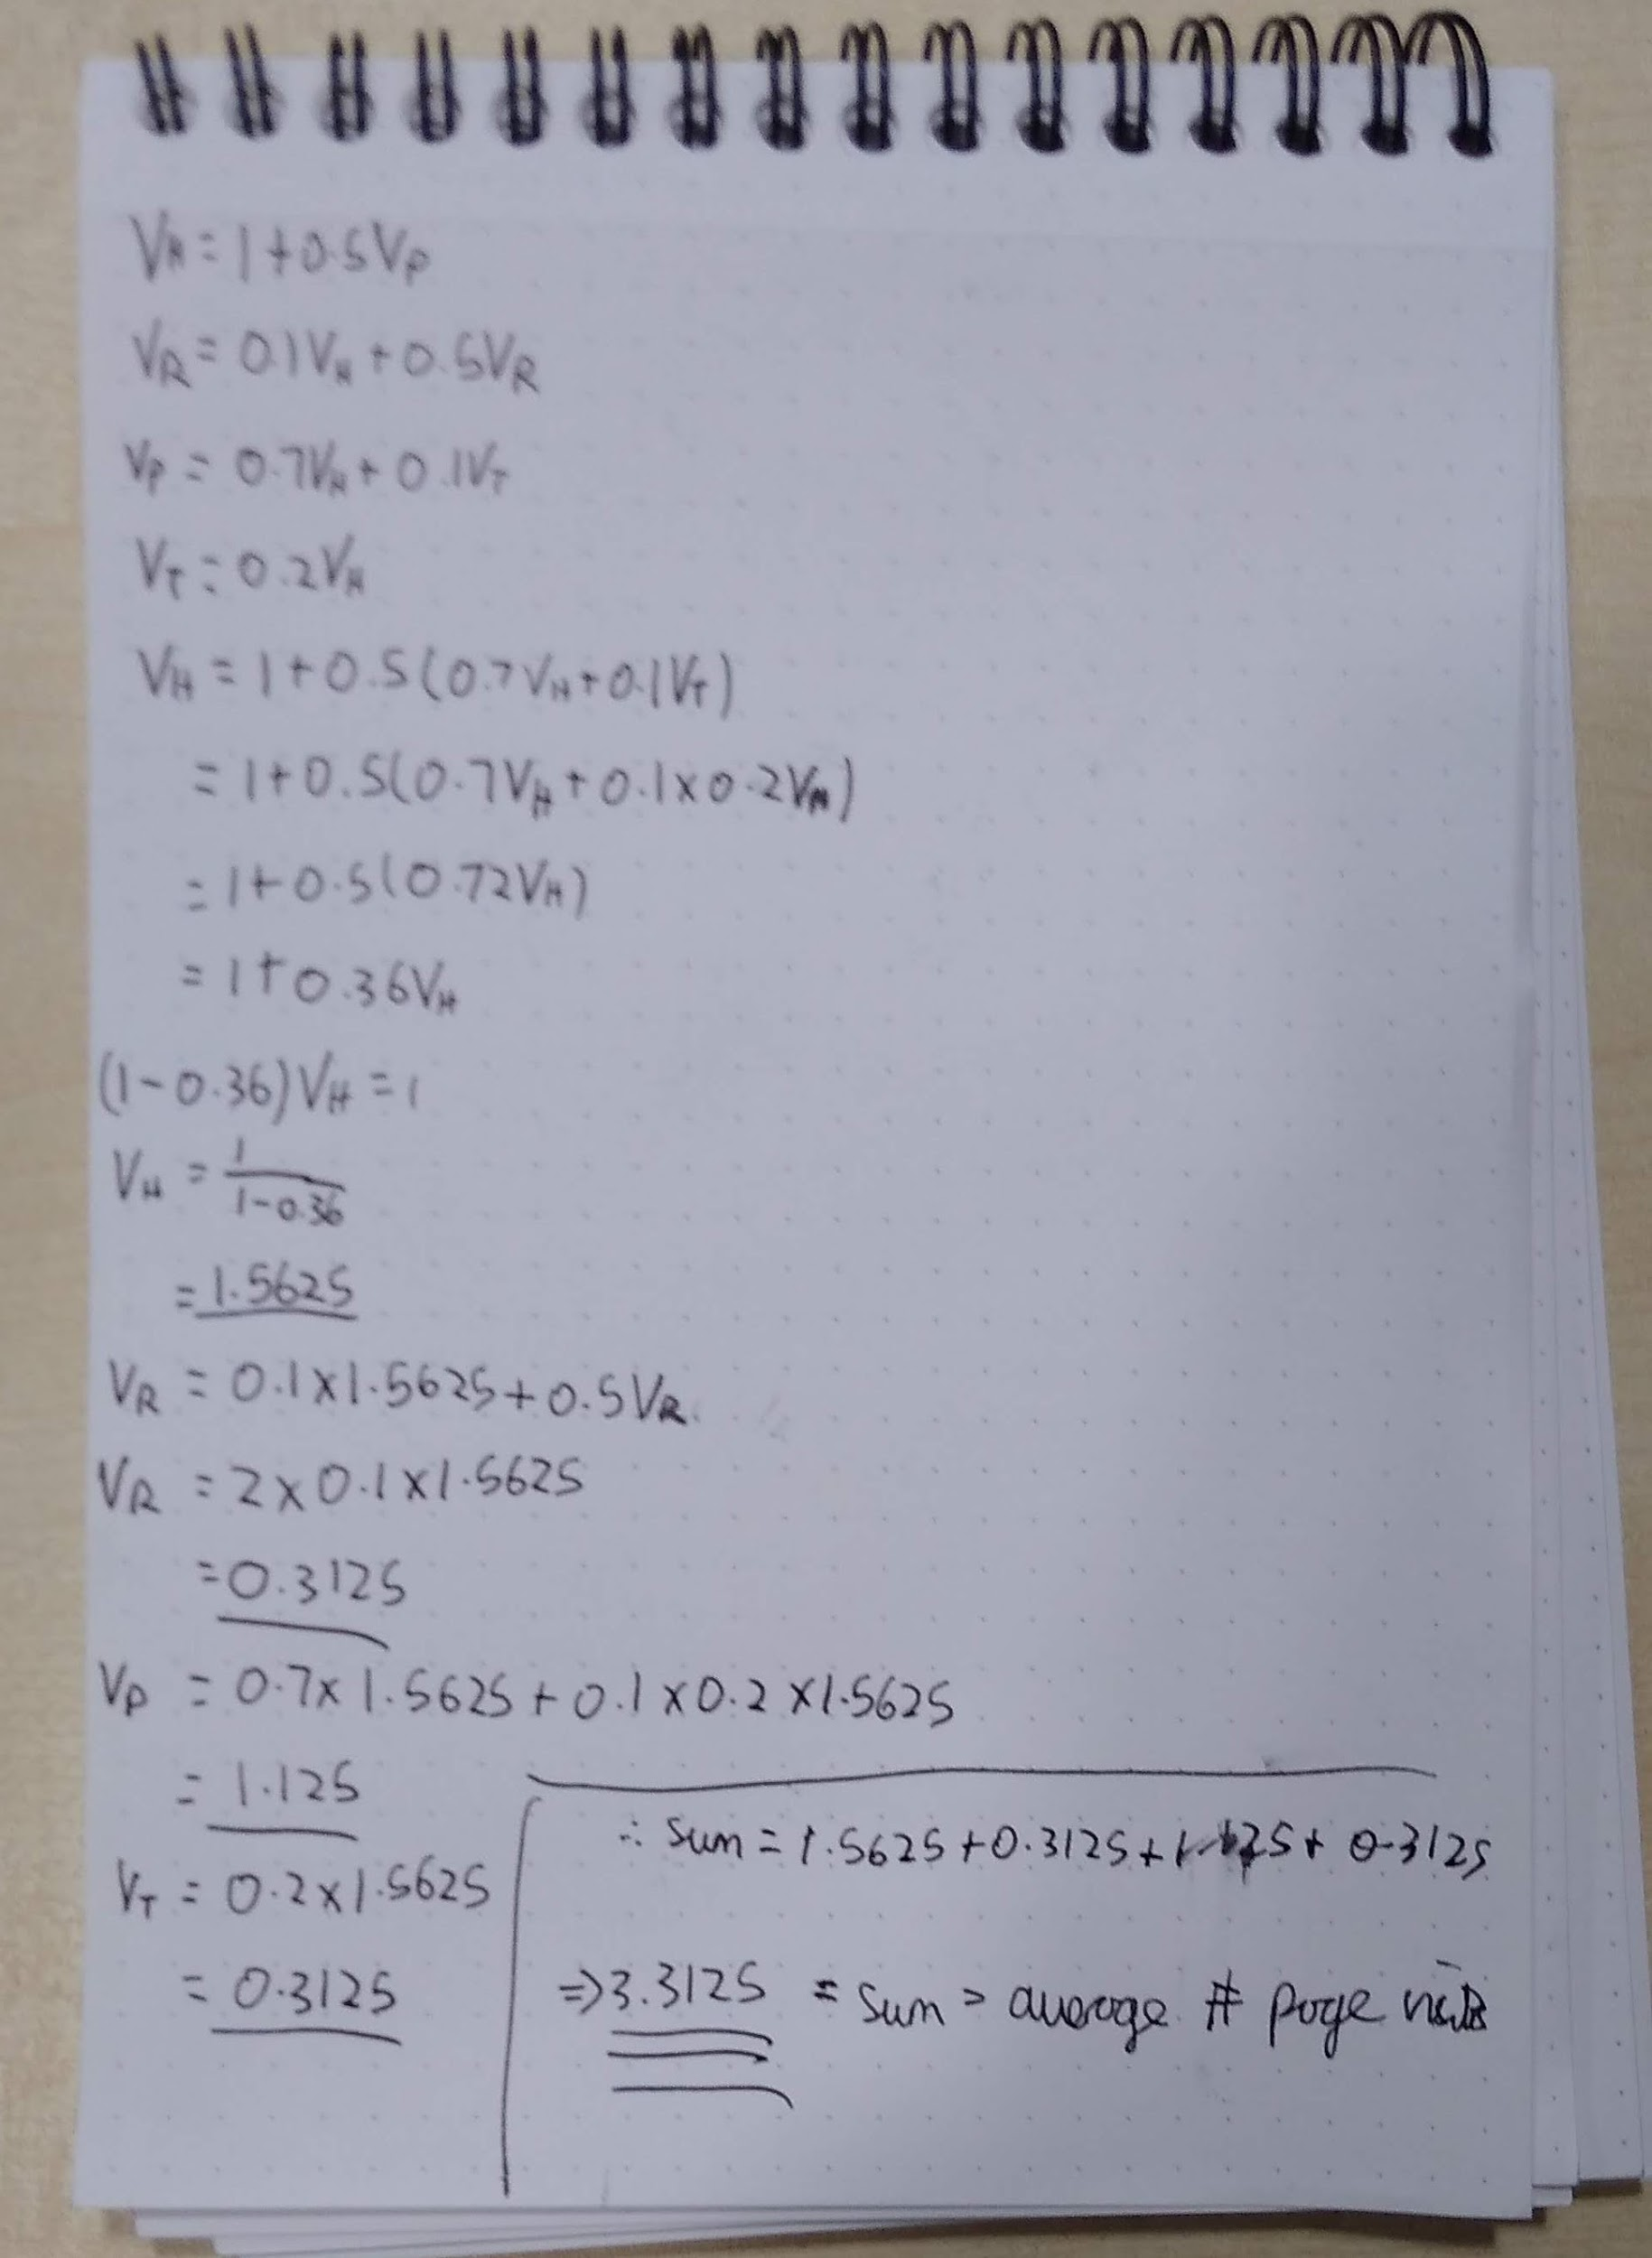 V_H = 1 + 0.5V_P
V_R = 0.1V_H + 0.5V_R
V_P = 0.7V_H + 0.1V_T
V_T = 0.2V_H
V_H = 1 + 0.5(0.7V_H + 0.1V_T)
= 1 + 0.5(0.7V_H + 0.1 × 0.2V_H)
= 1 + 0.5(0.72V_H)
= 1 + 0.36V_H
(1 - 0.36)V_H = 1
V_H = 1/(1 - 0.36)
= 1.5625
V_R = 0.1 × 1.5625 + 0.5V_R
V_R = 2 × 0.1 × 1.5625
= 0.3125
V_P = 0.7 × 1.5625 + 0.1 × 0.2 × 1.5625
= 1.125
V_T = 0.2 × 1.5625
= 0.3125
∴ sum = 1.5625 + 0.3125 + 1.125 + 0.3125
⇒ 3.3125 = sum = average # page visits